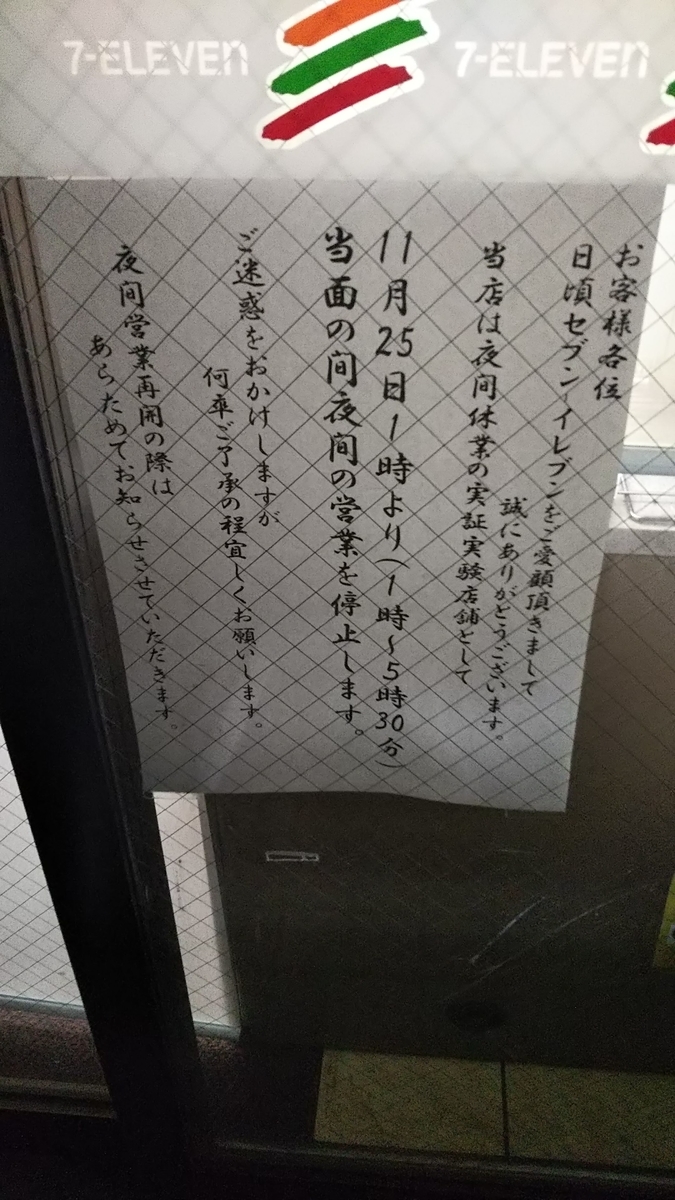 7-ELEVEn
7-ELEVEn
お客様各位
日頃セブン-イレブンをご愛顧頂きまして
誠にありがとうございます。
当店は夜間休業の実証実験店舗として
11月25日1時より(1時~5時30分)
当面の間夜間の営業を停止します。
ご迷惑をおかけしますが
何卒ご了承の程宜しくお願いします。
夜間営業再開の際は
あらためてお知らせさせていただきます。